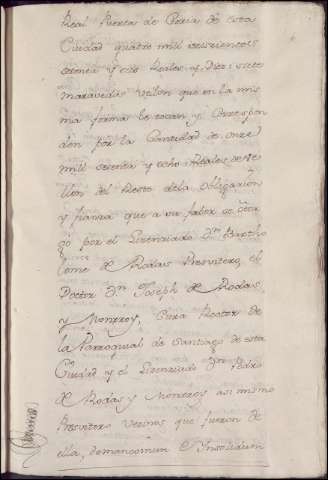 Real Puerta de Feria de esta
Ciudad quatro mil seiscientos
setenta y ocho Reales y Diez i siete
maravedis Vellon que en la mis
ma forma le tocan y Correspon
den por la Cantidad de onze
mil setenta y ocho Reales de Ve
llon del Resto de la Obligacion
y fianza que a su fabor se otor
go por el Lizenziado Dn. Bartho
lome de Rodas Presvitero, el
Doctor Dn. Joseph de Rodas,
y Monrroy, Cura Rector de
la Parroquial de Santiago de esta
Ciudad y el Lizenziado Dn.
de Rodas y Monrroy asi mismo
Presvitero Vezinos que fueron de
ella, demancomun e Ynsolidum